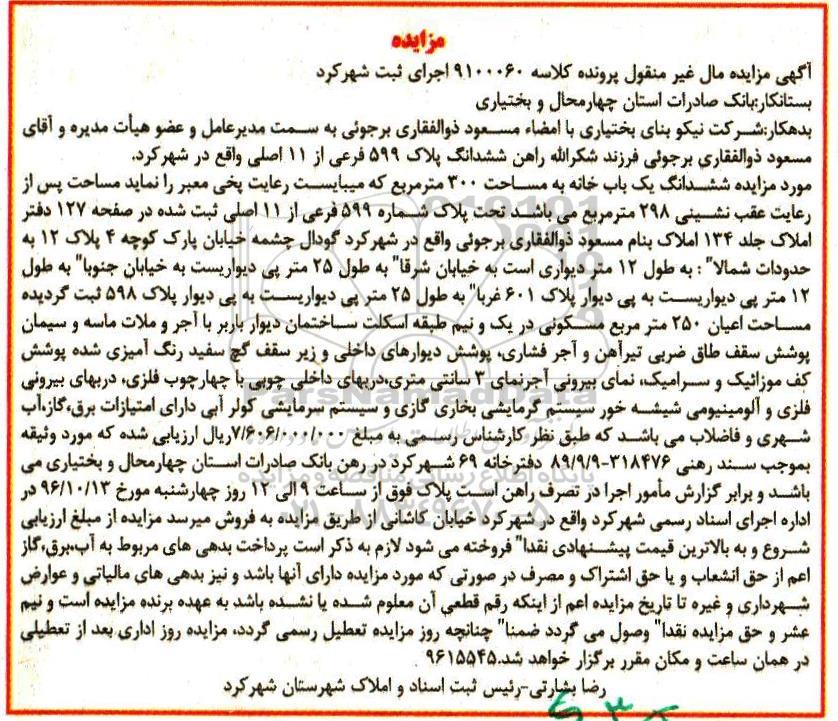 مزایده
آگهی مزایده مال غیر منقول پرونده کلاسه ۹۱۰۰۰۶۰ اجرای ثبت شهرکرد
بستانکار:بانک صادرات استان چهارمحال و بختیاری
بدهکار:شرکت نیکو بنای بختیاری با امضاء مسعود ذوالفقاری برجوئی به سمت مدیرعامل و عضو هیأت مدیره و آقای
مسعود ذوالفقاری برجوئی فرزند شکرالله راهن ششدانگ پلاک ۵۹۹ فرعی از ۱۱ اصلی واقع در شهرکرد.
مورد مزایده ششدانگ یک باب خانه به مساحت ۳۰۰ مترمربع که میبایست رعایت پخی معبر را نماید مساحت پس از
رعایت عقب نشینی ۲۹۸ مترمربع می باشد تحت پلاک شماره ۵۹۹ فرعی از ۱۱ اصلی ثبت شده در صفحه ۱۲۷ دفتر
املاک جلد ۱۳۴ املاک بنام مسعود ذوالفقاری برجوئی واقع در شهرکرد گودال چشمه خیابان پارک کوچه ۴ پلاک ۱۲ به
حدودات شمالا" : به طول ۱۲ متر دیواری است به خیابان شرقا" به طول ۲۵ متر پی دیواریست به خیابان جنوبا" به طول
۱۲ متر پی دیواریست به پی دیوار پلاک ۶۰۱ غربا" به طول ۲۵ متر پی دیواریست به پی دیوار پلاک ۵۹۸ ثبت گردیده
مساحت اعیان ۲۵۰ متر مربع مسکونی در یک و نیم طبقه اسکلت ساختمان دیوار باربر با آجر و ملات ماسه و سیمان
پوشش سقف طاق ضربی تیرآهن و آجر فشاری، پوشش دیوارهای داخلی و زیر سقف گچ سفید رنگ آمیزی شده پوشش
کف موزائیک و سرامیک، نمای بیرونی آجرنمای ۳ سانتی متری،دربهای داخلی چوبی با چهارچوب فلزی، دربهای بیرونی
فلزی و آلومینیومی شیشه خور سیستم گرمایشی بخاری گازی و سیستم سرمایشی کولر آبی دارای امتیازات برق،گاز،آب
شهری و فاضلاب می باشد که طبق نظر کارشناس رسمی به مبلغ ۷/۶۰۶/۰۰۰/۰۰۰ریال ارزیابی شده که مورد وثیقه
بموجب سند رهنی ۳۱۸۴۷۶-۸۹/۹/۹ دفترخانه ۶۹ شهرکرد در رهن بانک صادرات استان چهارمحال و بختیاری می
باشد و برابر گزارش مأمور اجرا در تصرف راهن است پلاک فوق از ساعت ۹ الی ۱۲ روز چهارشنبه مورخ ۹۶/۱۰/۱۳ در
اداره اجرای اسناد رسمی شهرکرد واقع در شهرکرد خیابان کاشانی از طریق مزایده به فروش میرسد مزایده از مبلغ ارزیابی
شروع و به بالاترین قیمت پیشنهادی نقدا" فروخته می شود لازم به ذکر است پرداخت بدهی های مربوط به آب،برق،گاز
اعم از حق انشعاب و یا حق اشتراک و مصرف در صورتی که مورد مزایده دارای آنها باشد و نیز بدهی های مالیاتی و عوارض
شهرداری و غیره تا تاریخ مزایده اعم از اینکه رقم قطعی آن معلوم شده یا نشده باشد به عهده برنده مزایده است و نیم
عشر و حق مزایده نقدا" وصول می گردد ضمنا" چنانچه روز مزایده تعطیل رسمی گردد، مزایده روز اداری بعد از تعطیلی
در همان ساعت و مکان مقرر برگزار خواهد شد.۹۶۱۵۵۴۵
رضا بشارتی-رئیس ثبت اسناد و املاک شهرستان شهرکرد
ParsNamadData
۰۲۱-۸۸۳۴۹۶۷۰-۵